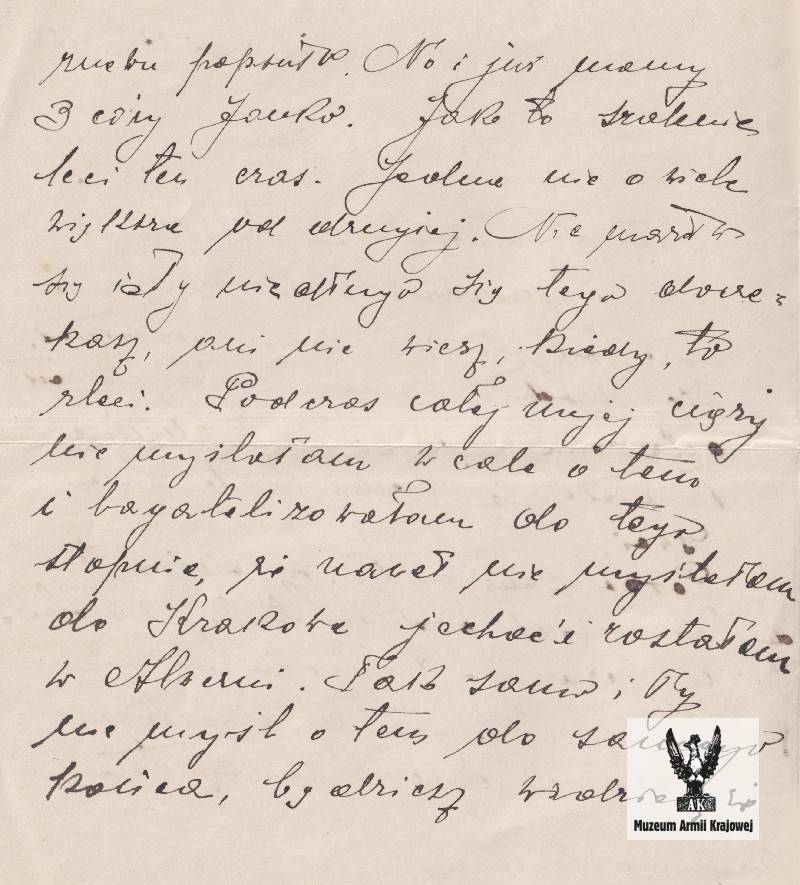 znowu popsuło. No i już mamy
3 córy Janko. Jak to szalenie
leci ten czas. Jedna nie o wiele
większa od drugiej. Nie martw
się i Ty niedługo się tego docze-
kasz, ani nie wiesz, kiedy to
zleci. Podczas całej mojej ciąży
nie myślałam wcale o tem
i bagatelizowałam do tego
stopnia, że nawet nie myślałam
do Krakowa jechać i zostałam
w Alwerni. Tak samo i Ty
nie myśl o tem do samego
końca, będziesz
AK
Muzeum Armii Krajowej